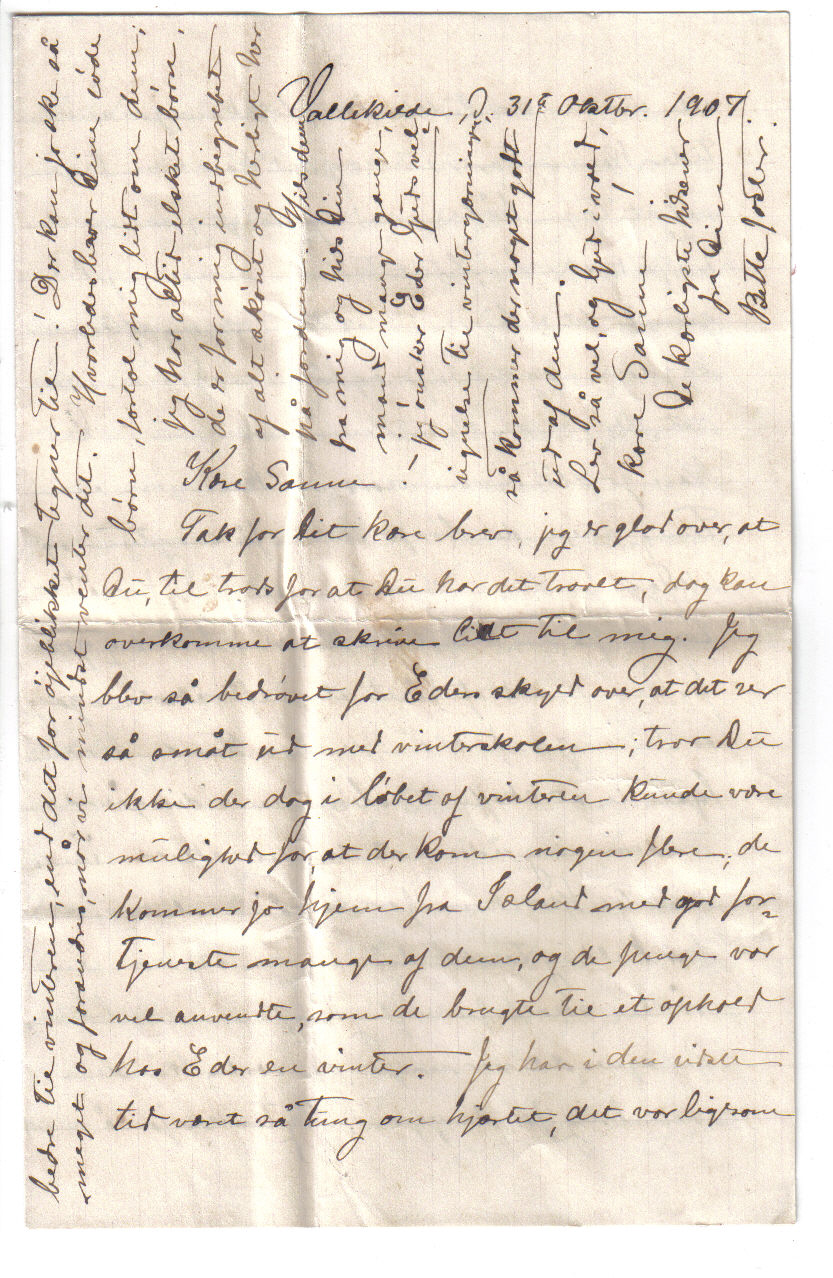 Vallekilde, d. 31te Oktbr. 1907.
Kære Sanne!
Tak for Dit kære brev, jeg er glad over, at
Du, til trods for at Du har det travlt, dog kan
overkomme at skrive lidt til mig. Jeg
blev så bedrøvet for Eders skyld over, at det ser
så småt ud med vinterskolen; tror Du
ikke der dog i løbet af vinteren kunde være
mulighed for, at der kom nogen flere, de
kommer jo hjem fra Island med god for-
tjeneste mange af dem, og de penge var
vel anvendte, som de brugte til et ophold
hos Eder en vinter. Jeg har i den sidste
tid været så tung om hjærtet, det var ligesom
bedre til vinteren, end det for øjeblikket tegner til! Der kan jo ske så
meget og forandres, når vi mindst venter det. Hvorledes har Dine søde
børn, fortæl mig lidt om dem;
jeg har altid elsket børn,
de er for mig indbegrebet
af alt skønt og herligt her
på jorden. Hils dem
fra mig og hils Din
mand mange gange,
jeg ønsker Eder Guds vel-
signelse til vintergerningen,
så kommer der noget godt
ud af den.
Lev så vel, og Gud i vold,
kære Sanne!
De kærligste hilsener
fra Din
Bette